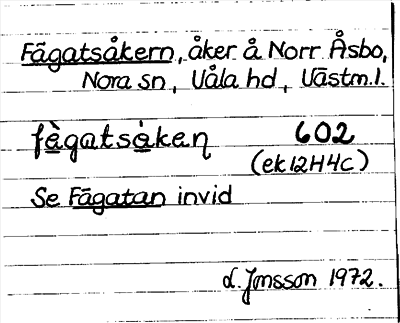 Fägatsåkern, åker å Norr Åsbo,
Nora sn, Våla hd, Västm.l.
fὲgatsåkeɳ 602
(ek 12H4C)
Se Fägatan invid
L. Jonsson 1972.